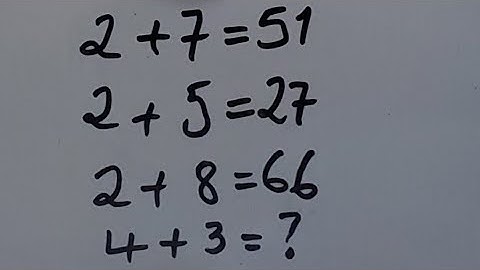 2+7=51
2+5=27
2+8=66
4+3=?